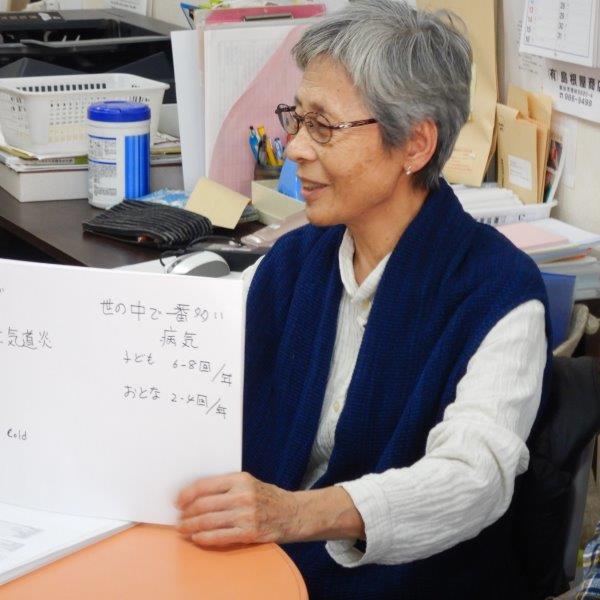 気道炎
cold
世の中で一番多い
病気
子ども 6-8回/年
おとな 2-4回/年
島根屋商店